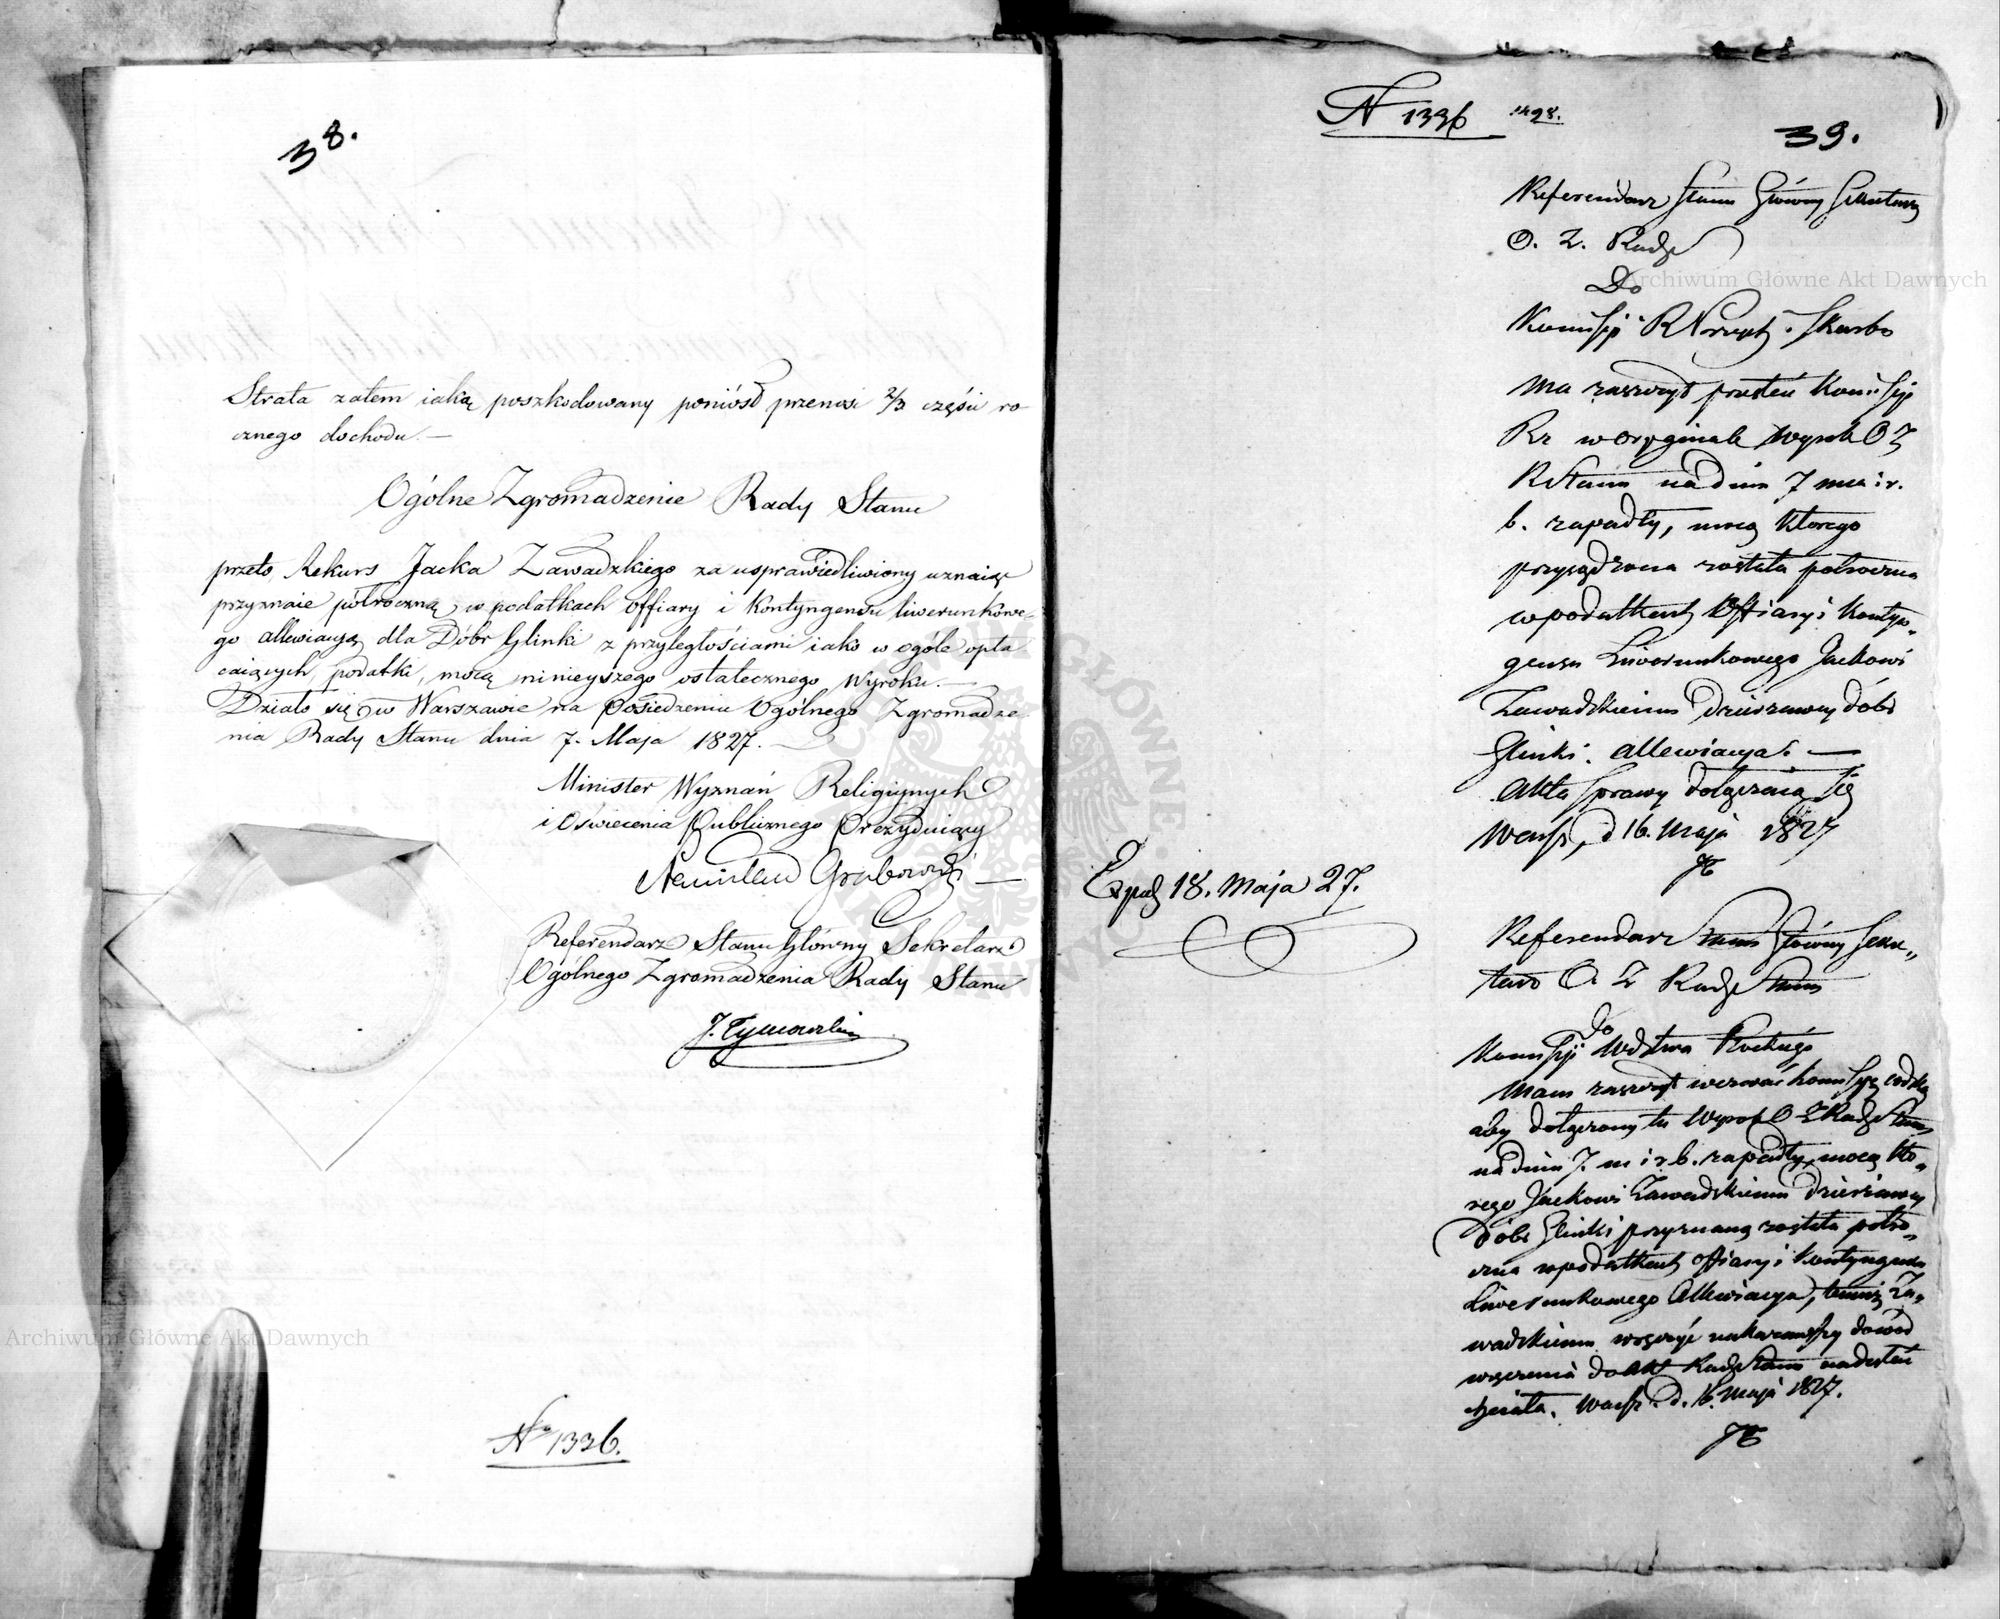 38.
Strata zatem iaką poszkodowany poniósł przenosi 2/3 części ro
cznego dochodu. —
Ogólne Zgromadzenie Rady Stanu
przeto Rekurs Jacka Zawadzkiego za usprawiedliwiony uznaiąc
przyznaie półroczną w podatkach offiary i Kontyngensu liwerunkowe-
go allewiacyą dla Dóbr Glinki z przyległościami iako w ogóle opła
caiących podatki, mocą ninieyszego ostatecznego Wyroku. —
Działo się w Warszawie na Posiedzeniu Ogólnego Zgromadze-
nia Rady Stanu dnia 7. Maja 1827. —
Minister Wyznań Religijnych
i Oświecenia Publicznego Prezyduiący
Stanisław Grabowski —
Referendarz Stanu Główny Sekretarz
Ogólnego Zgromadzenia Rady Stanu
J. Tymowski
No 1336.
N 1336
39.
Referendarz Stanu Główny Sekretarz
O. Z. Rady
Do
Kommissyi R Przych. i Skarbu
Ma zaszczyt przesłać Kommissyi
Rz w oryginale Wyrok O Z
R Stanu na dniu 7 m i r.
b. zapadły, mocą którego
przysądzona została półroczna
w podatkach Offiary i Kontyn-
gensu Liwerunkowego Jackowi
Zawadzkiemu Dzierżawcy dóbr
Glinki allewiacya. —
Akta Sprawy dołączaią się
Warsz, d 16. Maja 1827
JT
Exped 18. Maja 27.
Referendarz Stanu Główny Sekre-
tarz O. Z Rady Stanu
Do
Kommissyi Wdztwa Płockiego
Mam zaszczyt wezwać Kommissyę Wdzką
aby dołączony tu Wyrok O Z Rady Stanu
na dniu 7. m i r b. zapadły, mocą któ-
rego Jackowi Zawadzkiemu Dzierżawcy
Dóbr Glinki przyznaną została półro-
czna w podatkach offiary i Kontyngensu
Liwerunkowego Allewiacya, temuż Za-
wadzkiemu wręczyć nakazawszy dowód
wręczenia do Akt Rady Stanu nadesłać
chciała. Warsz. d. 16. Maja 1827.
JT
Archiwum Główne Akt Dawnych
Archiwum Główne Akt Dawnych